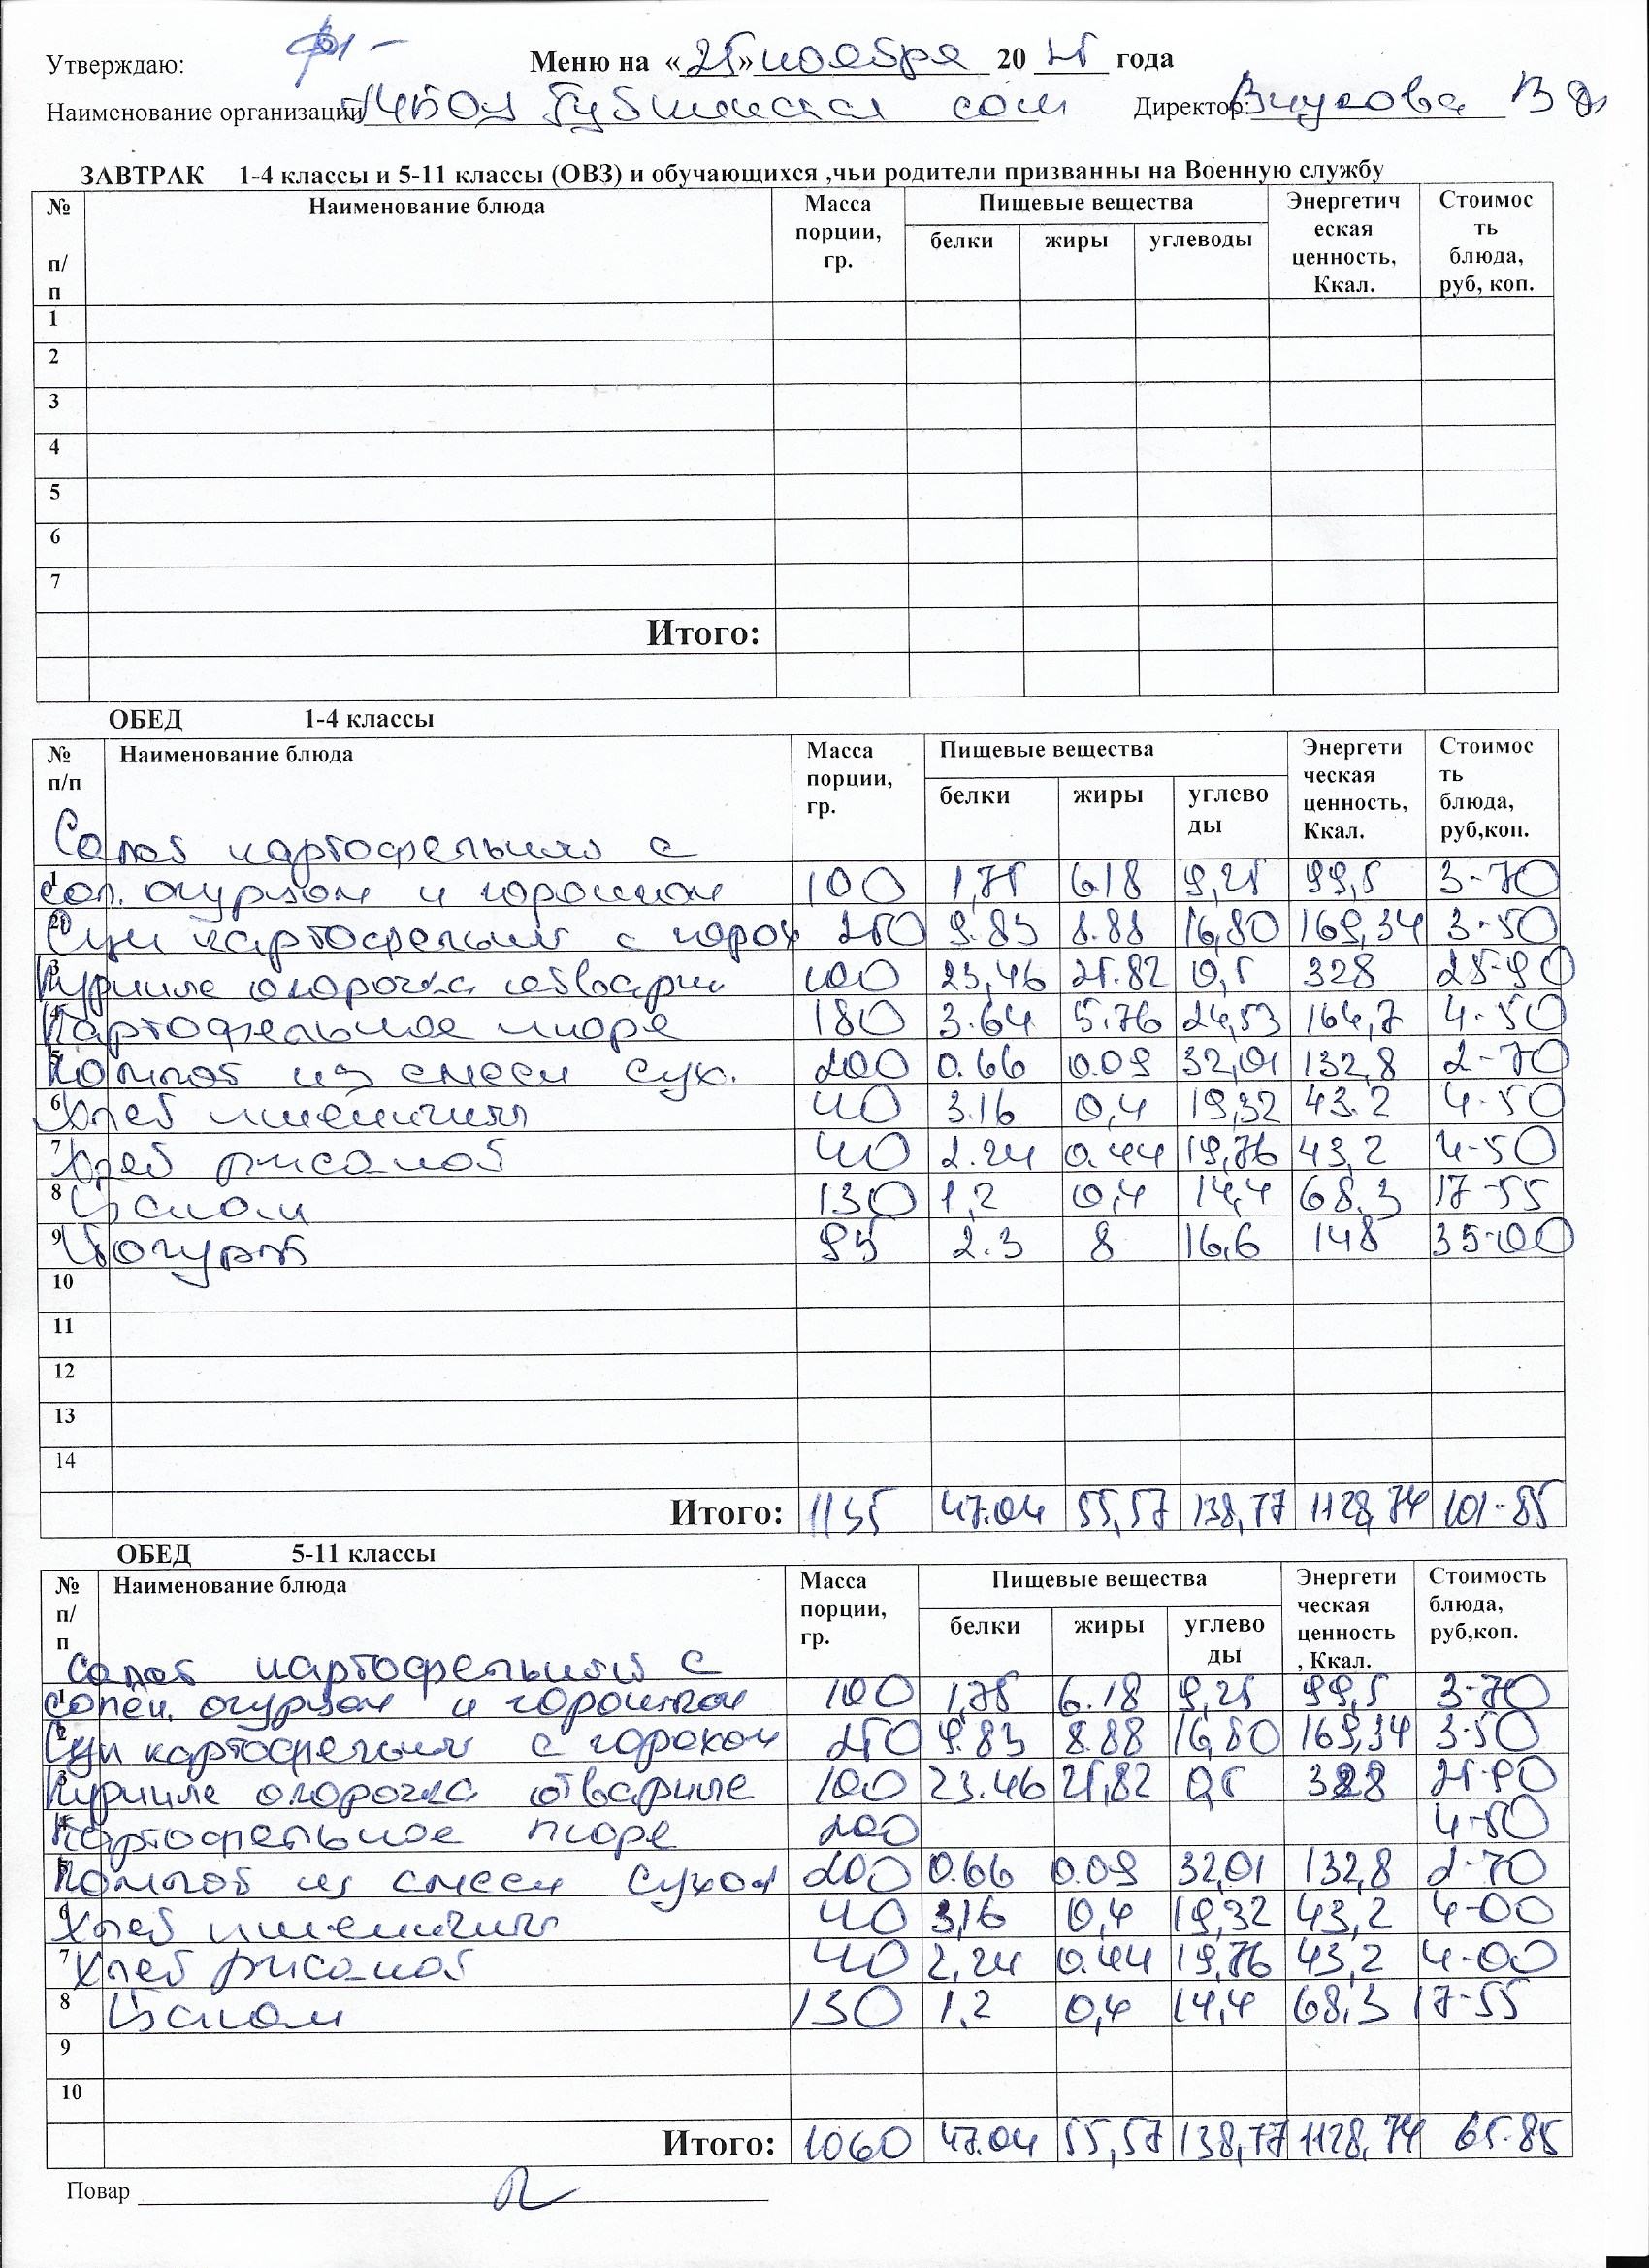 Утверждаю: Меню на «25» ноября 20 25 года
Наименование организации МБОУ сош Директор:
ЗАВТРАК 1-4 классы и 5-11 классы (ОВЗ) и обучающихся ,чьи родители призванны на Военную службу
№ п/п Наименование блюда Масса порции, гр. Пищевые вещества Энергетическая ценность, Ккал. Стоимость блюда, руб, коп.
белки жиры углеводы
1
2
3
4
5
6
7
Итого:
ОБЕД 1-4 классы
№ п/п Наименование блюда Масса порции, гр. Пищевые вещества Энергетическая ценность, Ккал. Стоимость блюда, руб,коп.
белки жиры углеводы
Салат картофельный с
1 сол. огурцом и горошком 100 1,75 6.18 9,25 99,5 3-70
2 Суп картофельный с горох 250 9.83 8.88 16,80 169,34 3-50
3 Курица окорочка отварн 100 23,46 25.82 0,5 328 25-90
4 Картофельное пюре 180 3.64 5.76 24,53 164,7 4-50
5 Компот из смеси сух. 200 0.66 0.09 32,01 132,8 2-70
6 Хлеб пшеничный 40 3.16 0,4 19,32 43.2 4-50
7 Хлеб ржаной 40 2.24 0.44 19,76 43,2 4-50
8 130 1,2 0,4 14,4 68,3 17-55
9 Йогурт 95 2.3 8 16,6 148 35-00
10
11
12
13
14
Итого: 1135 47.04 55,57 138,77 1128,74 101-85
ОБЕД 5-11 классы
№ п/п Наименование блюда Масса порции, гр. Пищевые вещества Энергетическая ценность, Ккал. Стоимость блюда, руб,коп.
белки жиры углеводы
Салат картофельный с
1 солен. огурцом и горошком 100 1,75 6.18 9,25 99,5 3-70
2 Суп картофельный с горохом 250 9.83 8.88 16,80 169,34 3-50
3 окорочка отварные 100 23.46 25,82 0,5 328 25-90
4 Картофельное пюре 200 4-50
5 Компот из смеси сухой 200 0.66 0.09 32,01 132,8 2-70
6 Хлеб пшеничный 40 3,16 0,4 19,32 43,2 4-00
7 Хлеб ржаной 40 2,24 0.44 19,76 43,2 4-00
8 130 1,2 0,4 14,4 68,3 17-55
9
10
Итого: 1060 47.04 55,57 138,77 1128,74 65-85
Повар